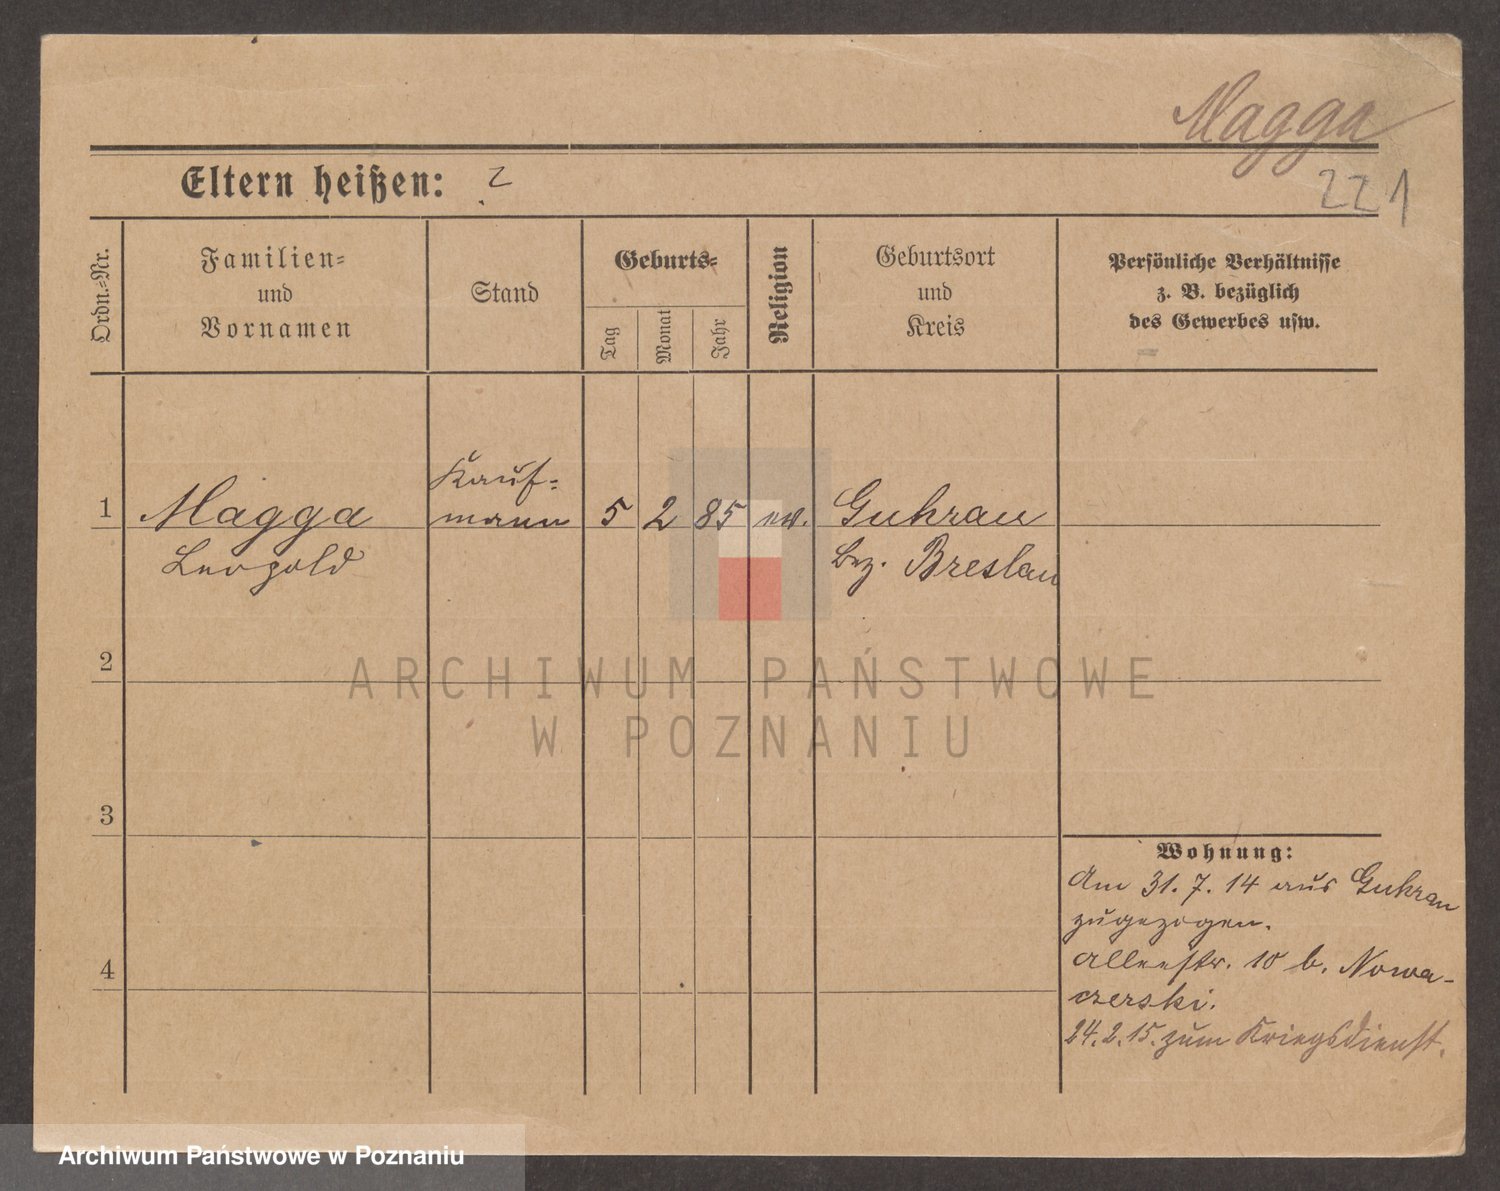 Magga
221
Eltern heißen:
Ordn.-Nr.
Familien-
und
Vornamen
Stand
Geburts-
Tag
Monat
Jahr
Religion
Geburtsort
und
Kreis
Persönliche Verhältnisse
z. B. bezüglich
des Gewerbes usw.
1
Magga
Leopold
Kauf-
mann
5
2
85
ev.
Guhrau
Bez. Breslau
2
3
4
Wohnung:
Am 31. 7. 14 aus Guhrau
zugezogen.
Alleestr. 10 b. Nowa-
czerski.
24. 2. 15. zum Kriegsdienst.
ARCHIWUM PAŃSTWOWE
W POZNANIU
Archiwum Państwowe w Poznaniu